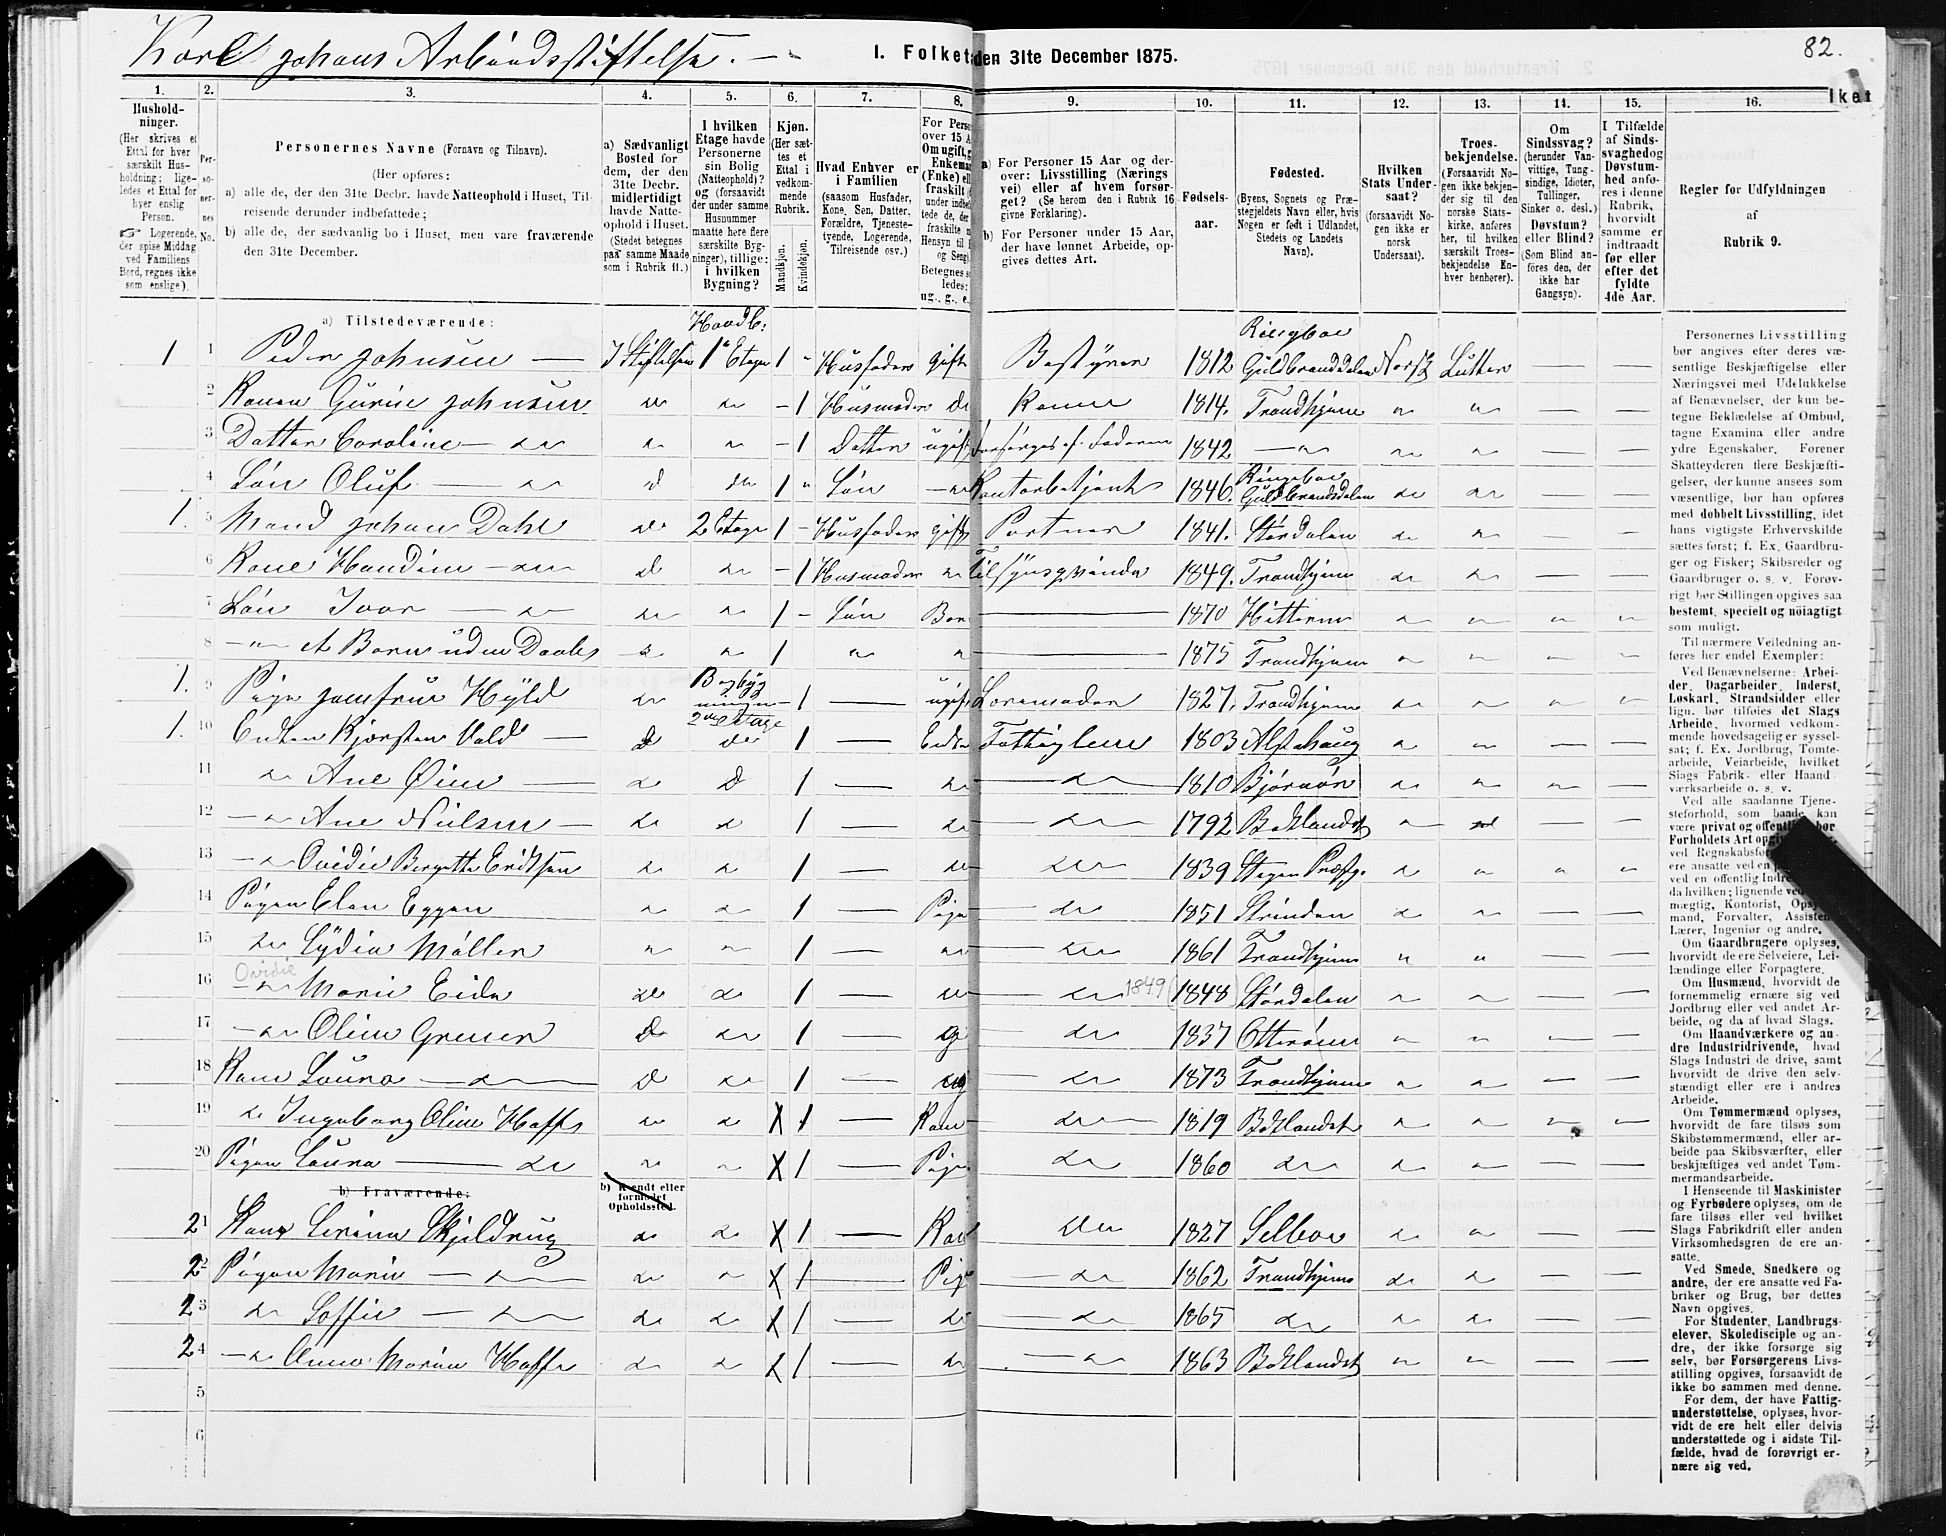 Karl Johans Arbeidsstiftelse.
I. Folket den 31te December 1875.
82.
lket
1. 2. 3. 4. 5. 6. 7. 8. 9. 10. 11. 12. 13. 14. 15. 16.
Hushold-
ninger.
(Her skrives et
Ettal for hver
særskilt Hus-
holdning; lige-
ledes et Ettal for
hver enslig
Person.
☞ Logerende,
der spise Middag
ved Familiens
Bord, regnes ikke
som enslige).
Per-
so-
ner-
nes
No.
Personernes Navne (Fornavn og Tilnavn).
(Her opføres:
a) alle de, der den 31te Decbr. havde Natteophold i Huset, Til-
reisende derunder indbefattede;
b) alle de, der sædvanlig bo i Huset, men vare fraværende
den 31te December.
a) Sædvanligt
Bosted for
dem, der den
31te Decbr.
midlertidigt
havde Natte-
ophold i Huset.
(Stedet betegnes
paa samme Maade
som i Rubrik 11.)
I hvilken
Etage havde
Personerne
sin Bolig
(Natteophold)?
og (forsaavidt
der under samme
Husnummer
maatte høre flere
særskilte Byg-
ninger), tillige:
i hvilken
Bygning?
Kjøn.
(Her sæt-
tes et
Ettal i
vedkom-
mende
Rubrik.
Mandkjøn.
Kvindekjøn.
Hvad Enhver er
i Familien
(saasom Husfader,
Kone, Søn, Datter,
Forældre, Tjeneste-
tyende, Logerende,
Tilreisende osv.)
For Perso
over 15 A
Om ugift, g
Enkema
(Enke) el
fraskilt (
under indbe
tede de, der
fraskilte
Hensyn til
og Seng
Betegnes s
ledes:
ug., g., e.,
a) For Personer 15 Aar og der-
over: Livsstilling (Nærings
vei) eller af hvem forsør-
get? (Se herom den i Rubrik 16
givne Forklaring).
b) For Personer under 15 Aar,
der have lønnet Arbeide, op-
gives dettes Art.
Fødsels-
aar.
Fødested.
(Byens, Sognets og Præ-
stegjeldets Navn eller, hvis
Nogen er født i Udlandet,
Stedets og Landets
Navn).
Hvilken
Stats Under-
saat?
(forsaavidt No-
gen ikke er
norsk
Undersaat).
Troes-
bekjendelse.
(Forsaavidt No-
gen ikke bekjen-
der sig til den
norske Stats-
kirke, anføres
her, til hvilken
særskilt Troes-
bekjendelse En-
hver henhører).
Om
Sindssvag?
(herunder Van-
vittige, Tung-
sindige, Idioter,
Tullinger,
Sinker o. desl.)
Døvstum?
eller Blind?
(Som Blind an-
føres den, der
ikke har
Gangsyn).
I Tilfælde
af Sinds-
svaghed og
Døvstum-
hed anfø-
res i denne
Rubrik,
hvorvidt
samme er
indtraadt
før eller
efter det
fyldte
4de Aar.
Regler for Udfyldningen
af
Rubrik 9.
a) Tilstedeværende:
1 1 Peder Johnsen — I Stiftelsen Hovedb: 1e Etage 1 " Husfader gift Bestyrer 1812 Ringeboe Guldbrandsdalen Norsk Luther
2 Konen Gurine Johnsen do do - 1 Husmoder do Kone 1814. Trondhjem " " — —
3 Datter Caroline — do " " - 1 Datter ugift forsørges af Faderen 1842 — " " " — —
4 Søn Oluf — do d do 1 " Søn — " Kontorbetjent 1846. Ringeboe Guldbrandsdalen do do — —
1. 5 Mand Johan Dahl do 2 Etage 1 - Husfader gift Portner 1841. Stördalen do " — —
6 Kone Handine — do d do - 1 Husmoder " Tilsynsqvinde 1849. Trondhjem do do — —
7 Søn Ivar — do do " 1 - Søn Barn — 1870 Hitteren " " " "
8 — " et Barn uden Daab do " 1 " " — 1875 Trondhjem " " — —
1. 9 Pige Jomfrue Hyld do Bagbyg ningen 2den Etage - 1 — ugift Lærerinde 1827. Trondhjem " " " "
1. 10 Enken Kjersten Vold — d do 1 — Enke Fattiglem 1803 Alstahaug " " — —
11 do Ane Øien — do d 1 — do — do — 1810 Bjørnør do " " —
12 — " Ane Nielsen — do d 1 — do — do 1792 Baklandet " d — —
13 — do Ovidie Bergitte Eridtsen do do 1 — do do 1839 Stegen Præstg. do " " "
14 Pigen Elen Eggen " do 1 — Pige — do 1851 Strinden do " — —
15 do Lydia Møller " " 1 — " — do 1861 Trondhjem " " — —
16 Ovidie — " Marie Eide do do 1 — do — do 1849 (1848) Stördalen " " — —
17 — do Oline Grenen d do 1 — g — do 1837 Otterøen " " — —
18 Barn Laura — do — d do 1 — ug — do 1873 Trondhjem " " — —
19 do Ingeborg Oline Hoffs do do X 1 — Kone — do 1819 Baklandet " " — —
20 Pigen Laura — do do " X 1 — Pige do 1860 do do " — —
b) Fraværende: b) Kjendt eller
formodet
Opholdssted.
21 Kone Serina Skjeldrug do do X 1 — Kone do 1827 Selboe do " — —
22 Pigen Marie — do do " X 1 — Pige — do 1862 Trondhjem do do — —
23 do Soffie — do do do X 1 — do — do 1865 do do do — —
24 — do Anna Marine Hoffs do do X 1 — do — " 1863 Baklandet " " — —
5
6
Personernes Livsstilling
bør angives efter deres væ-
sentlige Beskjæftigelse eller
Næringsvei med Udelukkelse
af Benævnelser, der kun be-
tegne Beklædelse af Ombud,
tagne Examina eller andre
ydre Egenskaber. Forener
Skatteyderen flere Beskjæfti-
gelser, der kunne ansees som
væsentlige, bør han opføres
med dobbelt Livsstilling, idet
hans vigtigste Erhvervskilde
sættes først; f. Ex. Gaardbru-
ger og Fisker; Skibsreder og
Gaardbruger o. s. v. Forøv-
rigt bør Stillingen opgives saa
bestemt, specielt og nöiagtigt
som muligt.
Til nærmere Veiledning an-
føres her endel Exempler:
Ved Benævnelserne: Arbei-
der, Dagarbeider, Inderst,
Løskarl, Strandsidder eller
lign. bør tilføies det Slags
Arbeide, hvormed vedkom-
mende hovedsagelig er syssel-
sat; f. Ex. Jordbrug, Tomte-
arbeide, Veiarbeide, hvilket
Slags Fabrik- eller Haand-
værksarbeide o. s. v.
Ved alle saadanne Tjene-
steforhold, som baade kan
være privat og offentlig, bør
Forholdets Art opgi
ved Regnskabsfø
ere ansatte ved en
ved en offentlig Indre
da hvilken; lignende ved
mægtig, Kontorist, Opsy
mand, Forvalter, Assisten
Lærer, Ingeniør og andre.
Om Gaardbrugere oplyses,
hvorvidt de ere Selveiere, Lei-
lændinge eller Forpagtere.
Om Husmænd, hvorvidt de
fornemmelig ernære sig ved
Jordbrug eller ved andet Ar-
beide, og da af hvad Slags.
Om Haandværkere og an-
dre Industridrivende, hvad
Slags Industri de drive, samt
hvorvidt de drive den selv-
stændigt eller ere i andres
Arbeide.
Om Tømmermænd oplyses,
hvorvidt de fare tilsøs som
Skibstømmermænd, eller ar-
beide paa Skibsværfter, eller
beskjæftiges ved andet Tøm-
mermandsarbeide.
I Henseende til Maskinister
og Fyrbødere oplyses, om de
fare tilsøs eller ved hvilket
Slags Fabrikdrift eller anden
Virksomhedsgren de ere an-
satte.
Ved Smede, Snedkere og
andre, der ere ansatte ved Fa-
briker og Brug, bør dettes
Navn opgives.
For Studenter, Landbrugs-
elever, Skoledisciple og an-
dre, der ikke forsørge sig
selv, bør Forsørgerens Livs-
stilling opgives, forsaavidt de
ikke bo sammen med denne.
For dem, der have Fattig-
understøttelse, oplyses, hvor-
vidt de ere helt eller delvis
understøttede og i sidste Til-
fælde, hvad de forøvrigt er-
nære sig ved.